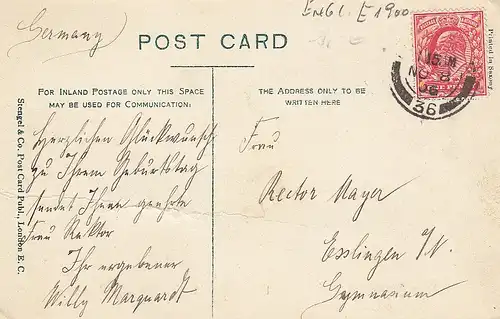 ENGL. E 1900
Germany
POST CARD
FOR INLAND POSTAGE ONLY THIS SPACE
MAY BE USED FOR COMMUNICATION:
THE ADDRESS ONLY TO BE
WRITTEN HERE
Printed in Saxony.
36
Stengel & Co. Post Card Publ., London E. C.
Herzlichen Glückwunsch
zu Ihrem Geburtstag
sendet Ihnen geehrte
Frau Rektor
Ihr ergebener
Willy Marquardt
Frau
Rector Mayer
Esslingen a/N.
Gymnasium